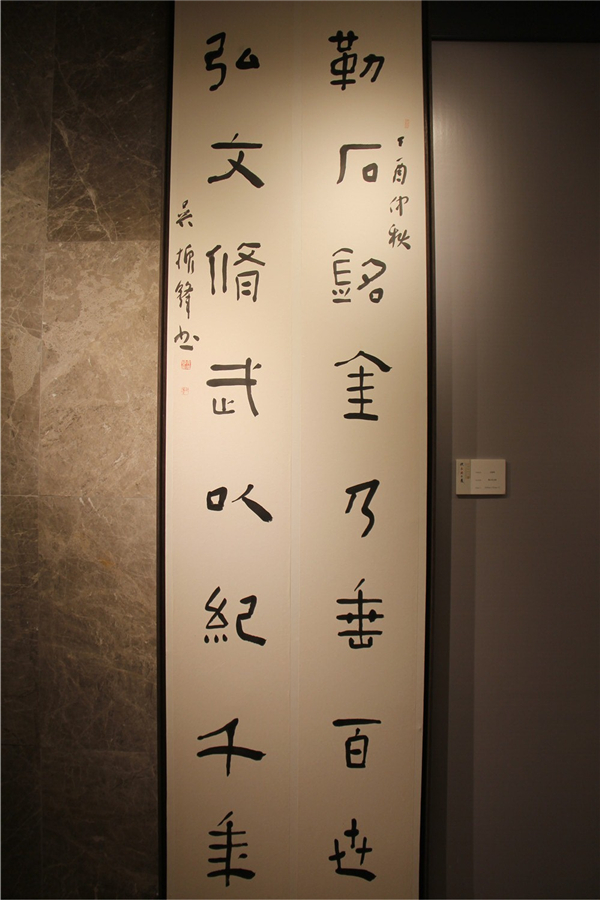 丁酉仲秋
勒石銘金乃垂百世
弘文脩武以紀千年
吴振鋒书